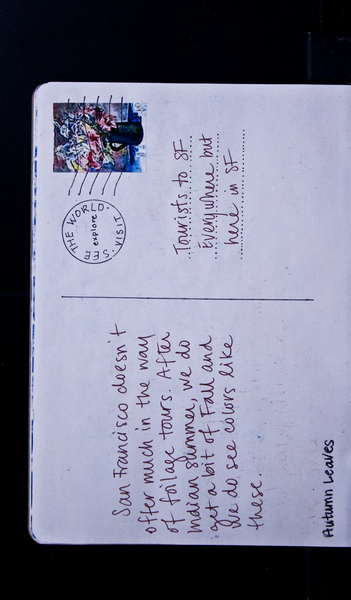 San Francisco doesn't
offer much in the way
of foilage tours. After
Indian Summer, we do
get a bit of Fall and
We do see colors like
these.
Autumn Leaves
THE WORLD. VISIT. SEE
explore
Tourists to SF
Everywhere but
here in SF